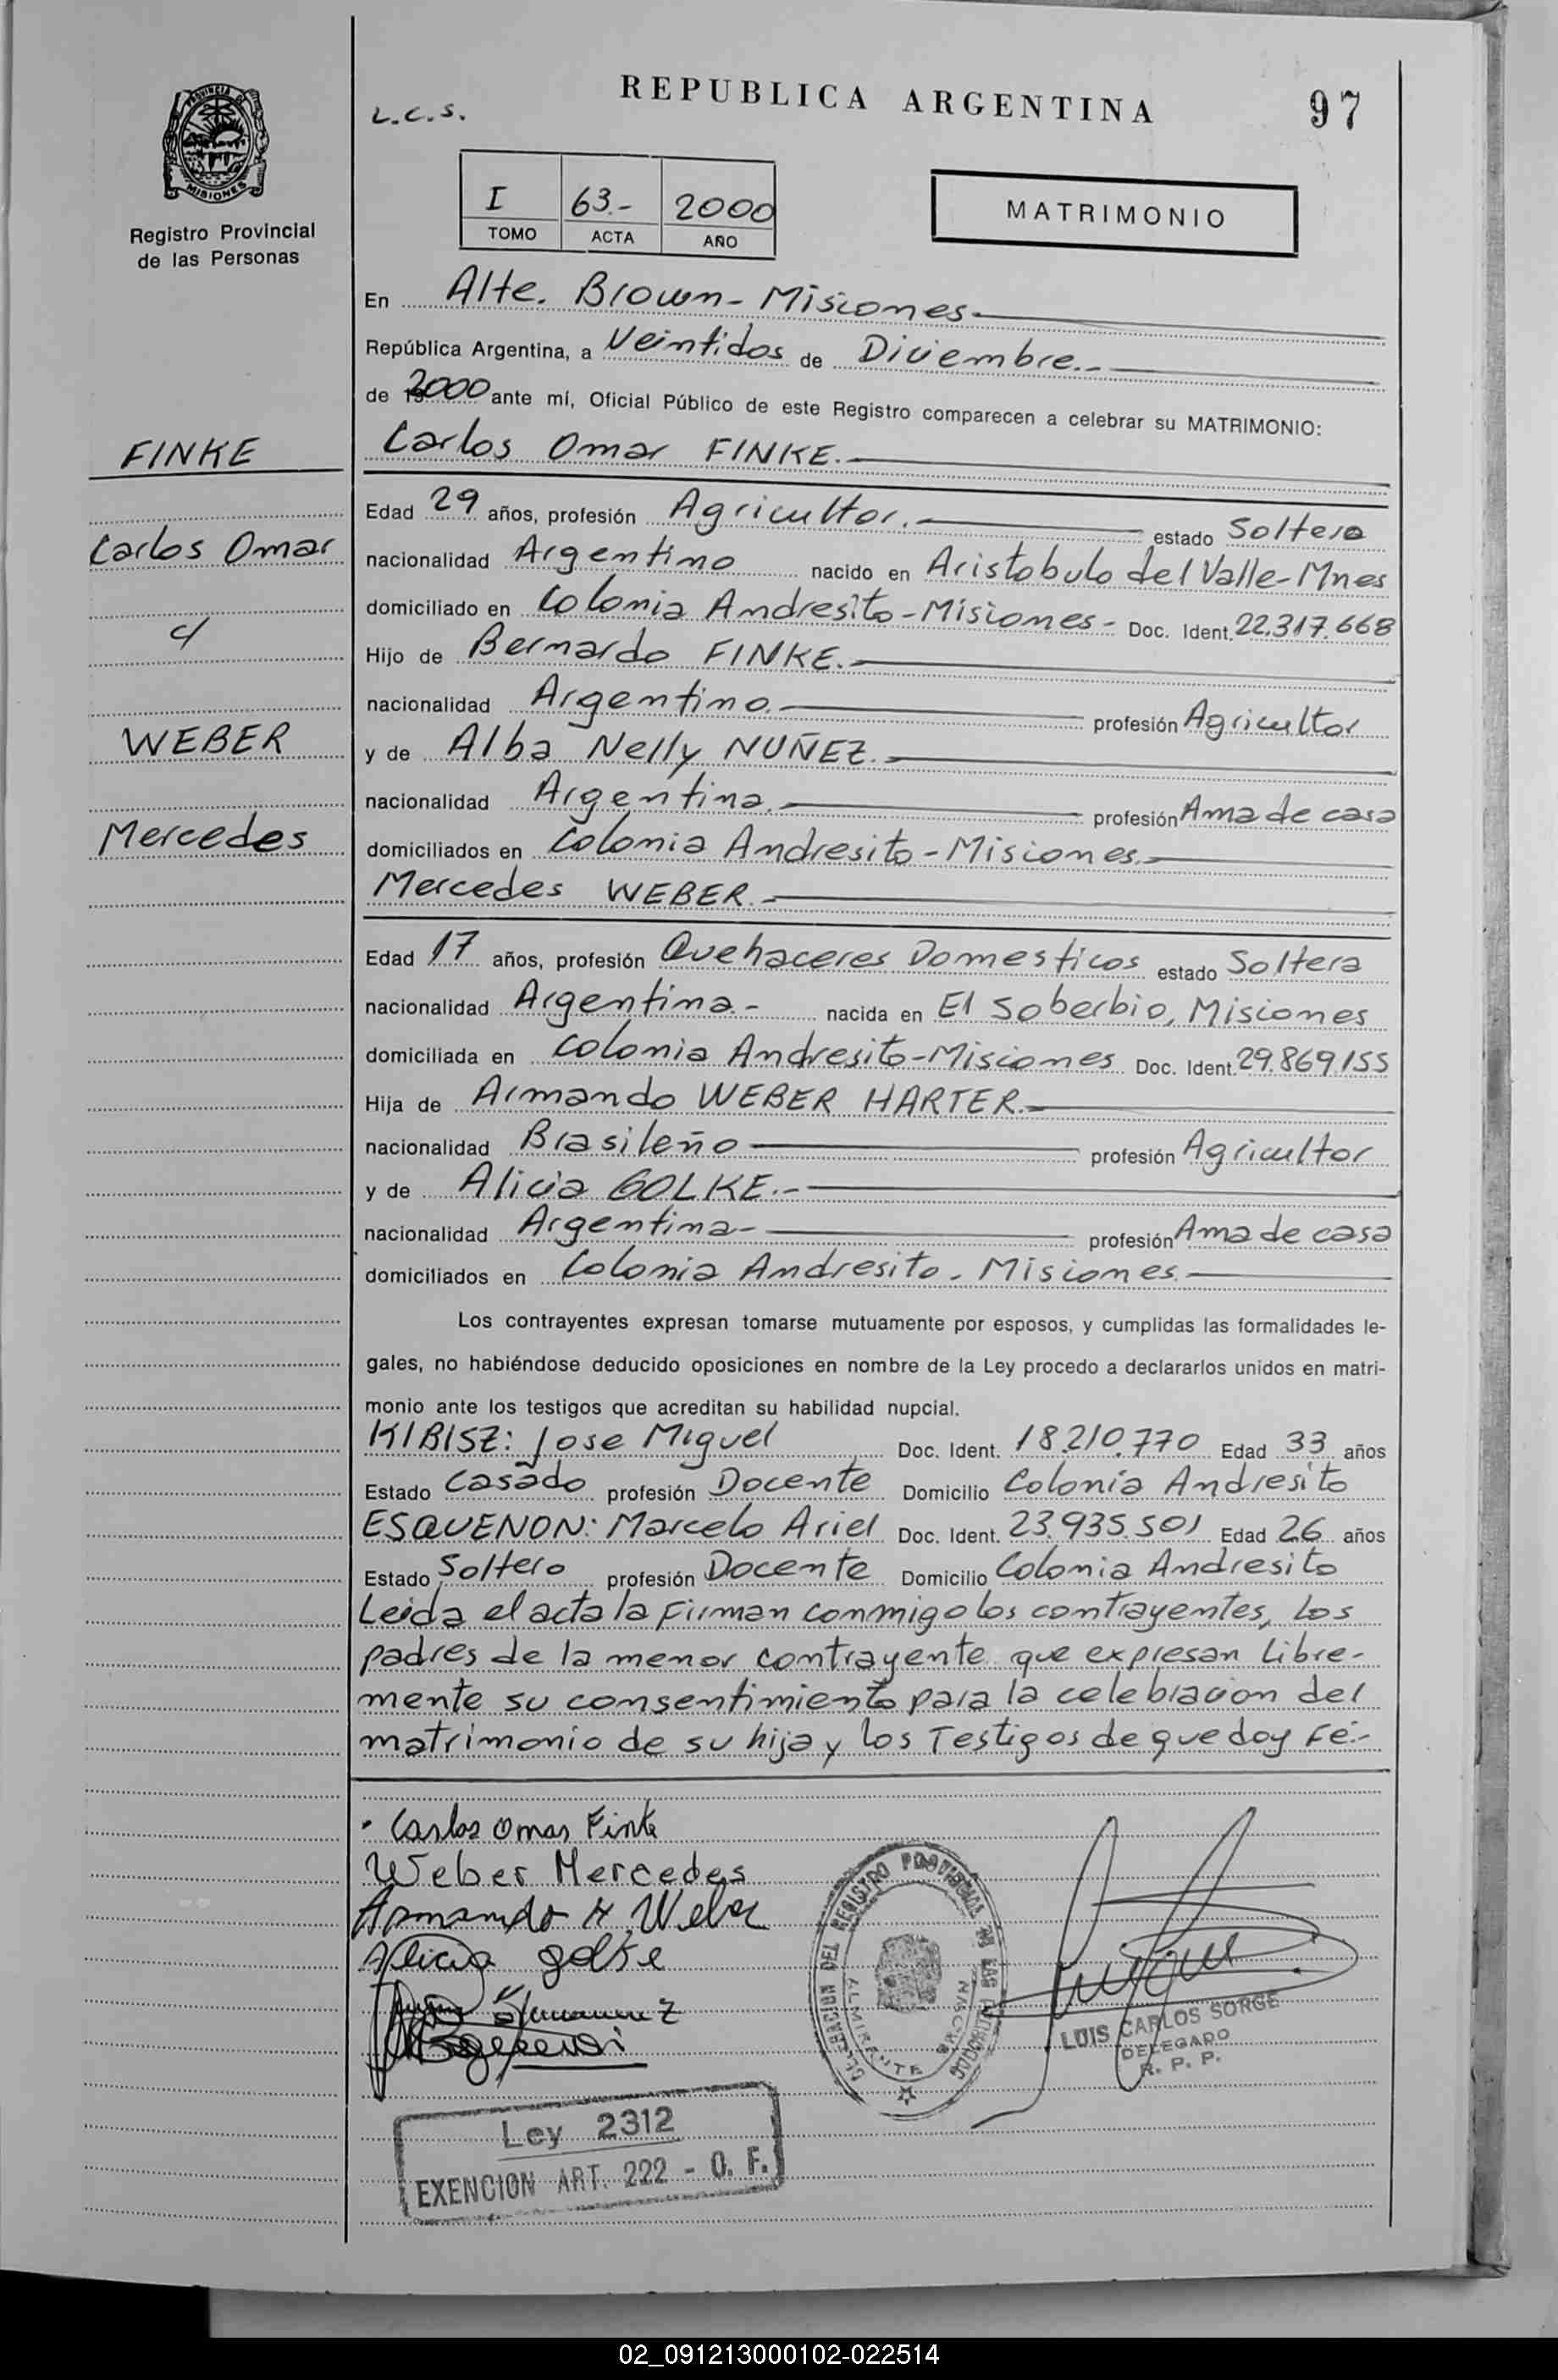 REPUBLICA ARGENTINA
97
L.C.S.
PROVINCIA DE
MISIONES
Registro Provincial
de las Personas
I 63.- 2000
TOMO ACTA AÑO
MATRIMONIO
En Alte. Brown - Misiones.
República Argentina, a Veintidos de Diciembre.-
de 2000 ante mí, Oficial Público de este Registro comparecen a celebrar su MATRIMONIO:
FINKE
Carlos Omar
y
WEBER
Mercedes
Carlos Omar FINKE.-
Edad 29 años, profesión Agricultor.- estado Soltero
nacionalidad Argentino nacido en Aristobulo del Valle-Mnes
domiciliado en Colonia Andresito-Misiones- Doc. Ident. 22.317.668
Hijo de Bernardo FINKE.-
nacionalidad Argentino.- profesión Agricultor
y de Alba Nelly NUÑEZ.-
nacionalidad Argentina.- profesión Ama de casa
domiciliados en Colonia Andresito-Misiones.-
Mercedes WEBER.-
Edad 17 años, profesión Quehaceres Domesticos estado Soltera
nacionalidad Argentina.- nacida en El Soberbio, Misiones
domiciliada en Colonia Andresito-Misiones Doc. Ident. 29.869.155
Hija de Armando WEBER HARTER.-
nacionalidad Brasileño profesión Agricultor
y de Alicia GOLKE.-
nacionalidad Argentina- profesión Ama de casa
domiciliados en Colonia Andresito. Misiones.
Los contrayentes expresan tomarse mutuamente por esposos, y cumplidas las formalidades le-
gales, no habiéndose deducido oposiciones en nombre de la Ley procedo a declararlos unidos en matri-
monio ante los testigos que acreditan su habilidad nupcial.
KIBISZ: Jose Miguel Doc. Ident. 18.210.770 Edad 33 años
Estado Casado profesión Docente Domicilio Colonia Andresito
ESQUENON: Marcelo Ariel Doc. Ident. 23.935.501 Edad 26 años
Estado Soltero profesión Docente Domicilio Colonia Andresito
Leida el acta la Firman conmigo los contrayentes, los
padres de la menor contrayente que expresan Libre-
mente su consentimiento para la celebracion del
matrimonio de su hija y los Testigos de que doy Fé.-
Carlos Omar Finke
Weber Mercedes
Armando H. Weber
Alicia golke
DELEGACION DEL REGISTRO PROVINCIAL DE LAS PERSONAS
ALMIRANTE BROWN
LUIS CARLOS SORGE
DELEGADO
R. P. P.
Ley 2312
EXENCION ART. 222 - O. F.
02_091213000102-022514